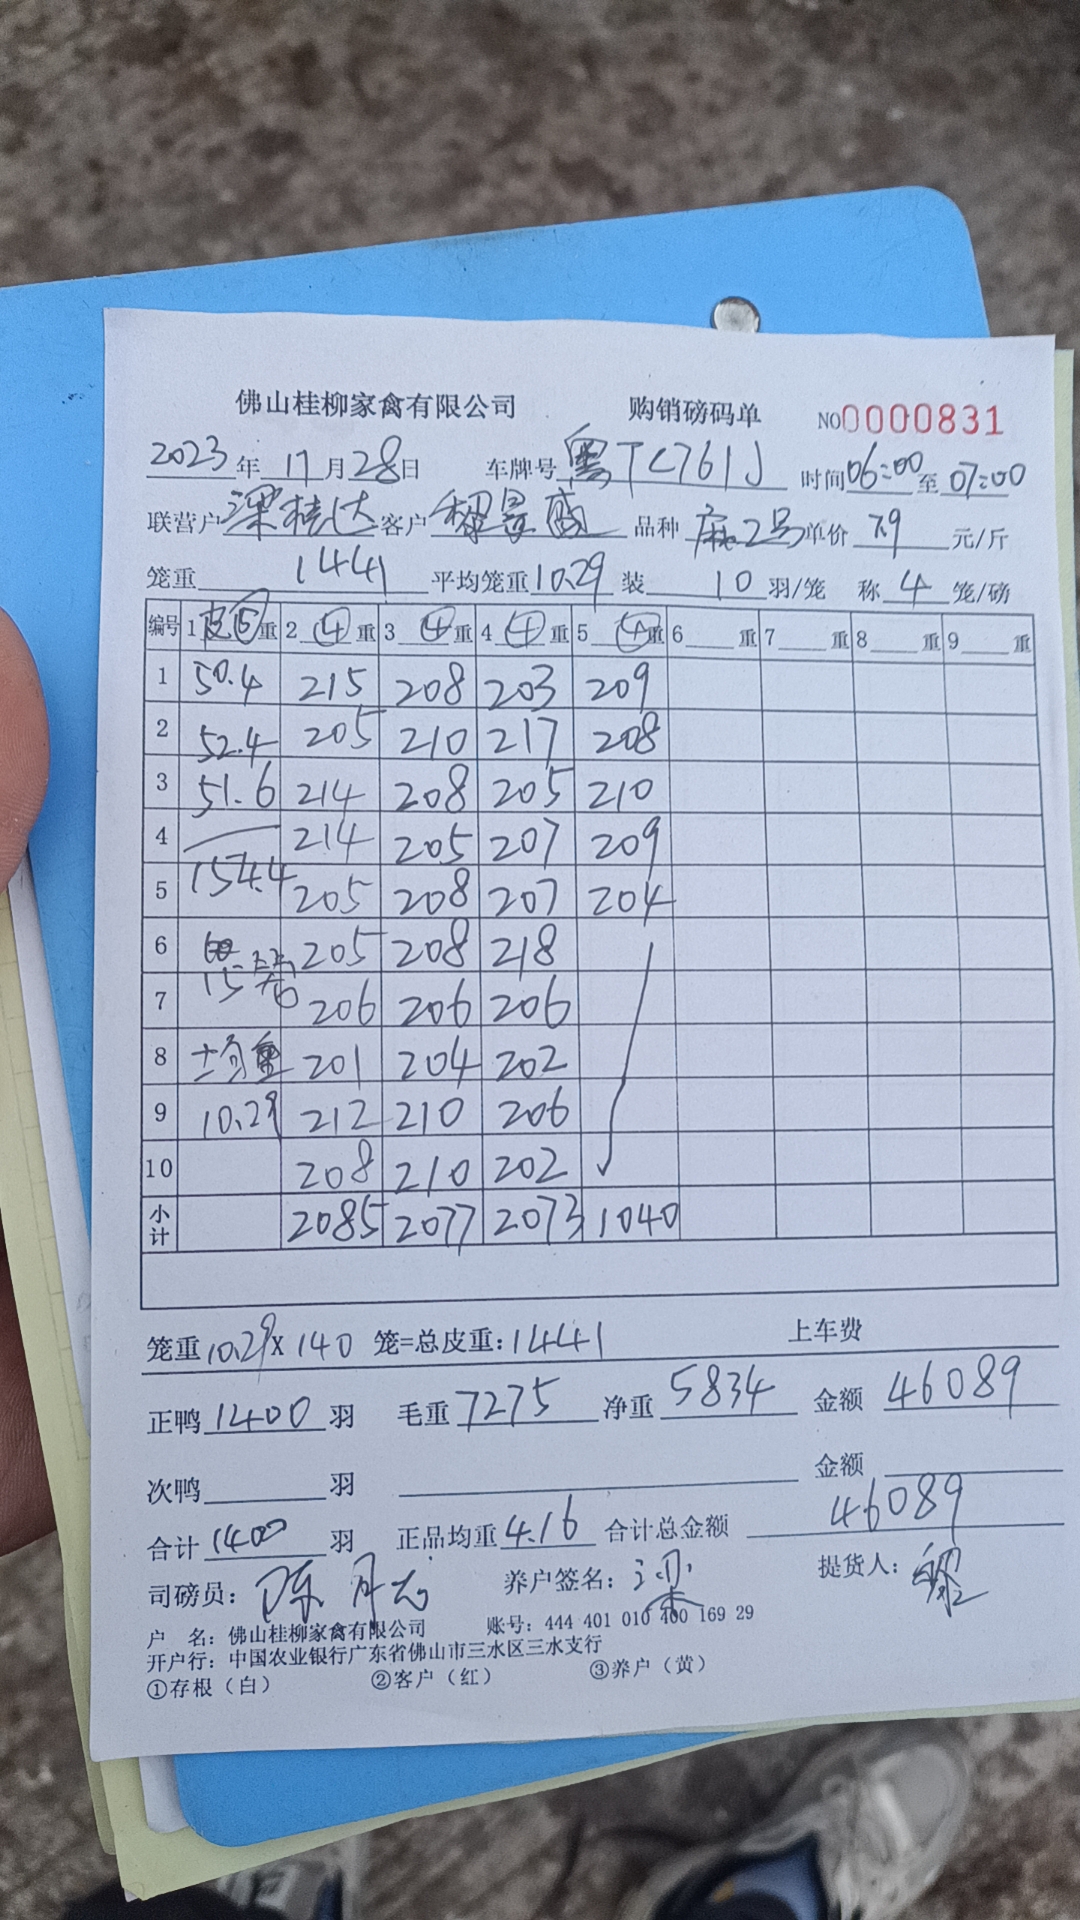 佛山桂柳家禽有限公司 购销磅码单 NO0000831
2023年11月28日 车牌号粤TC761J 时间06:00至07:00
联营户梁桂达客户黎景盛 品种麻2号单价7.9元/斤
笼重1441平均笼重10.29装10羽/笼 称4笼/磅
编号 1皮⑤重 2④重 3④重 4④重 5④重 6重 7重 8重 9重
1 50.4 215 208 203 209
2 52.4 205 210 217 208
3 51.6 214 208 205 210
4 214 205 207 209
5 154.4 205 208 207 204
6 205 208 218
7 15笼 206 206 206
8 均重 201 204 202
9 10.29 212 210 206
10 208 210 202
小计 2085 2077 2073 1040
笼重10.29x140笼=总皮重:1441 上车费
正鸭1400羽 毛重7275净重5834金额46089
次鸭羽 金额
合计1400羽 正品均重4.16合计总金额46089
司磅员:陈月 养户签名:梁 提货人:黎
户 名:佛山桂柳家禽有限公司 账号:444 401 010 400 169 29
开户行:中国农业银行广东省佛山市三水区三水支行
①存根(白) ②客户(红) ③养户(黄)